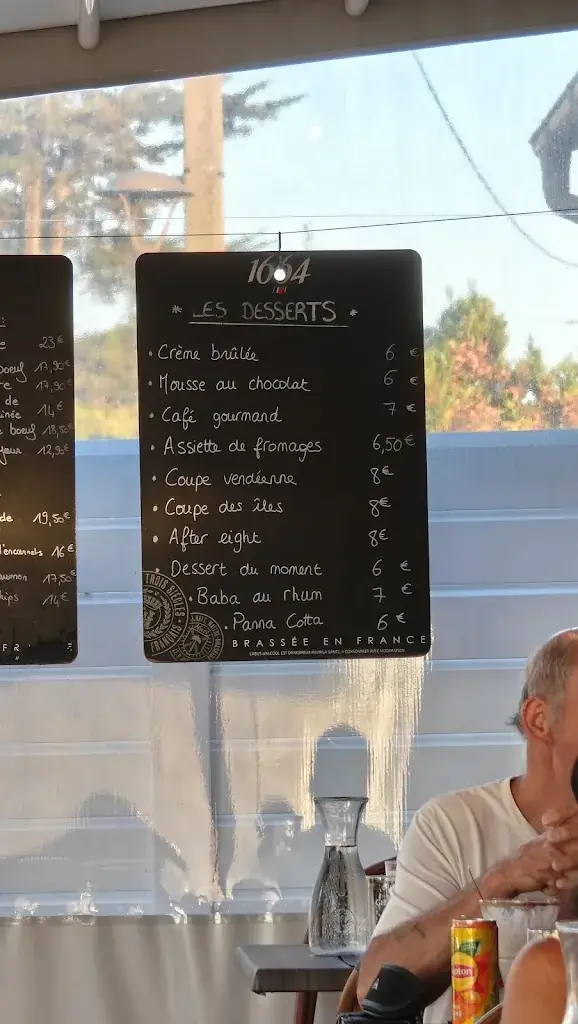 23€
boeuf 17,90€
17,90€
de
14€
boeuf 18,50€
12,90€
de 19,50€
16€
17,50€
14€
1664
* LES DESSERTS *
• Crème brûlée 6 €
• Mousse au chocolat 6 €
• Café gourmand 7 €
• Assiette de fromages 6,50€
• Coupe vendéenne 8€
• Coupe des îles 8€
• After eight 8€
• Dessert du moment 6 €
• Baba au rhum 7 €
• Panna Cotta 6 €
TROIS SIÈCLES
FRANÇAIS
BRASSÉE EN FRANCE
L'ABUS D'ALCOOL EST DANGEREUX POUR LA SANTÉ, À CONSOMMER AVEC MODÉRATION.
Lipton